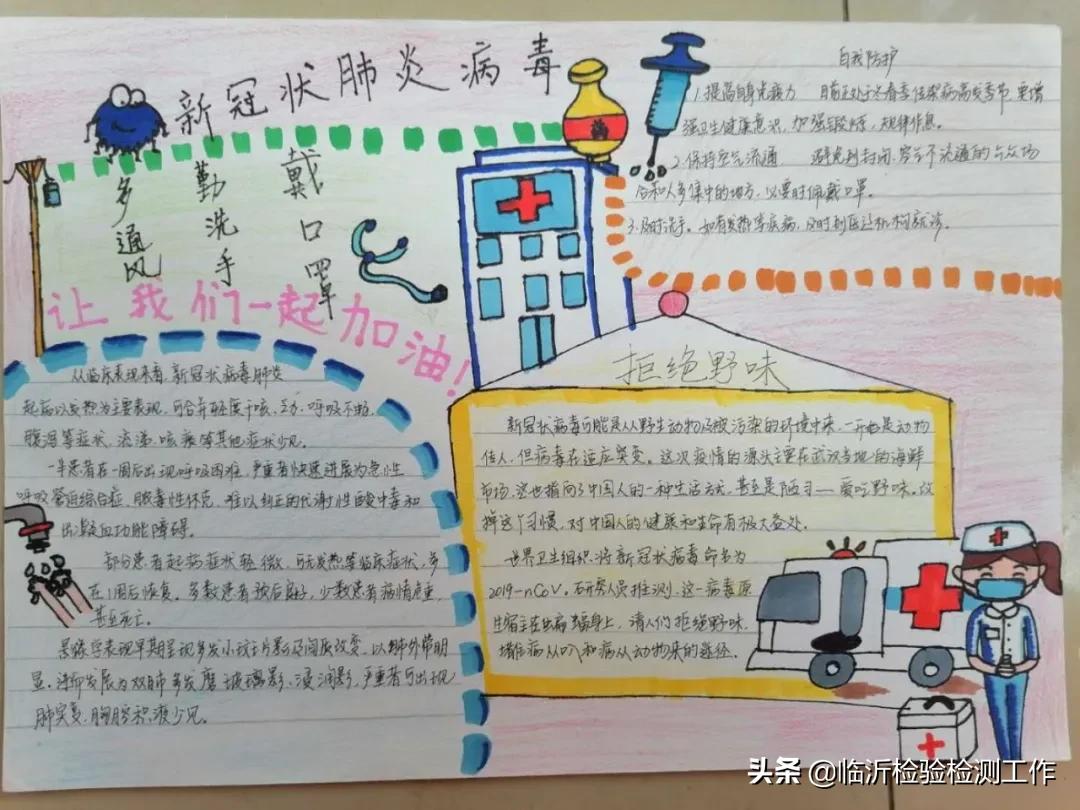 新冠状肺炎病毒
戴口罩
勤洗手
多通风
让我们一起加油！
药
自我防护
1.提高自身免疫力 目前正处于冬春季传染病高发季节,要增
强卫生健康意识,加强锻炼,规律作息。
2.保持空气流通 避免到封闭,空气不流通的公众场
合和人多集中的地方,必要时佩戴口罩。
3.及时洗手。如有发热等疾病,及时到医疗机构就诊。
从临床表现来看,新冠状病毒肺炎
起病以发热为主要表现,可合并轻度干咳、乏力、呼吸不畅、
腹泻等症状,流涕,咳痰等其他症状少见。
一半患者在一周后出现呼吸困难,严重者快速进展为急性
呼吸窘迫综合症,脓毒性休克,难以纠正的代谢性酸中毒和
出凝血功能障碍。
部分患者起病症状轻微,可无发热等临床症状,多
在1周后恢复。多数患者预后良好,少数患者病情危重,
甚至死亡。
表现早期呈现多发小斑片影及间质改变,以肺外带明
显,逐渐发展为双肺多发磨玻璃影、浸润影,严重者可出现
肺实变,胸腔积液少见。
拒绝野味
新冠状病毒可能是从野生动物及被污染的环境中来,一开始是动物
传人,但病毒在适应突变。这次疫情的源头主要在武汉当地的海鲜
市场,这也指向了中国人的一种生活方式,甚至是陋习——爱吃野味,改
掉这个习惯,对中国人的健康和生命有极大益处。
世界卫生组织将新冠状病毒命名为
2019-nCoV。研究人员推测,这一病毒原
生宿主在蝙蝠身上,请人们拒绝野味,
堵住病从口入和病从动物来的途径.
头条 @临沂检验检测工作